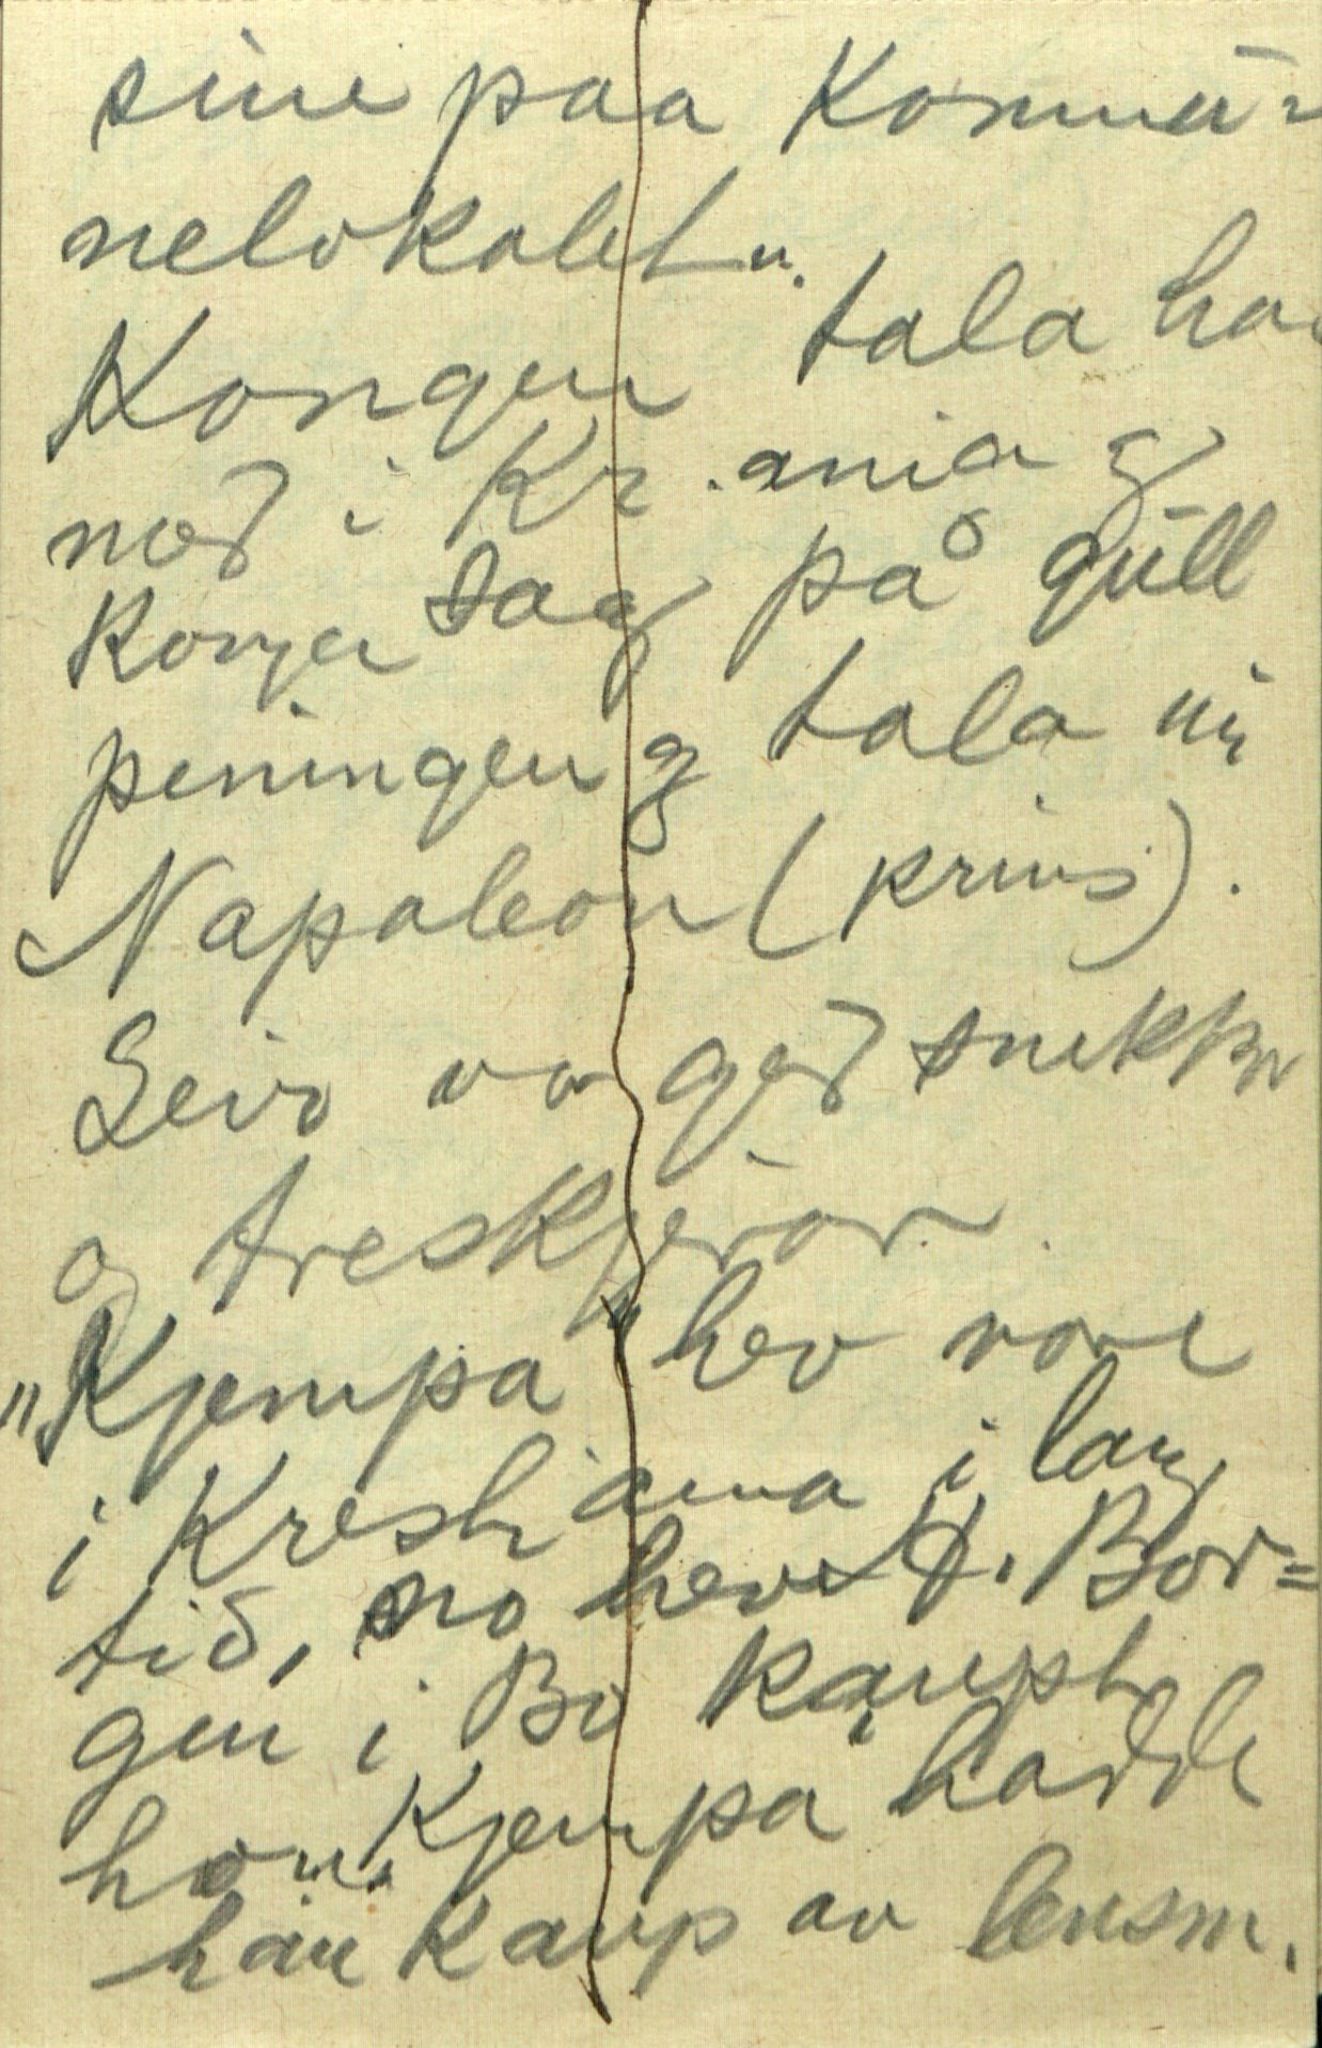 sine paa Kommu-
nelokalet".
Kongen tala han
med i Kr.ania og
Kongen sag på gull
peningen og tala um
Napoleon (prins).
Leiv var god snekker
og treskjerar.
"Kjempa" hev vore
i Krestiania i lang
tid, no hev H. Bor=
gen i Bø kaupt
honi. Kjempa hadde
han kaup av lensm.